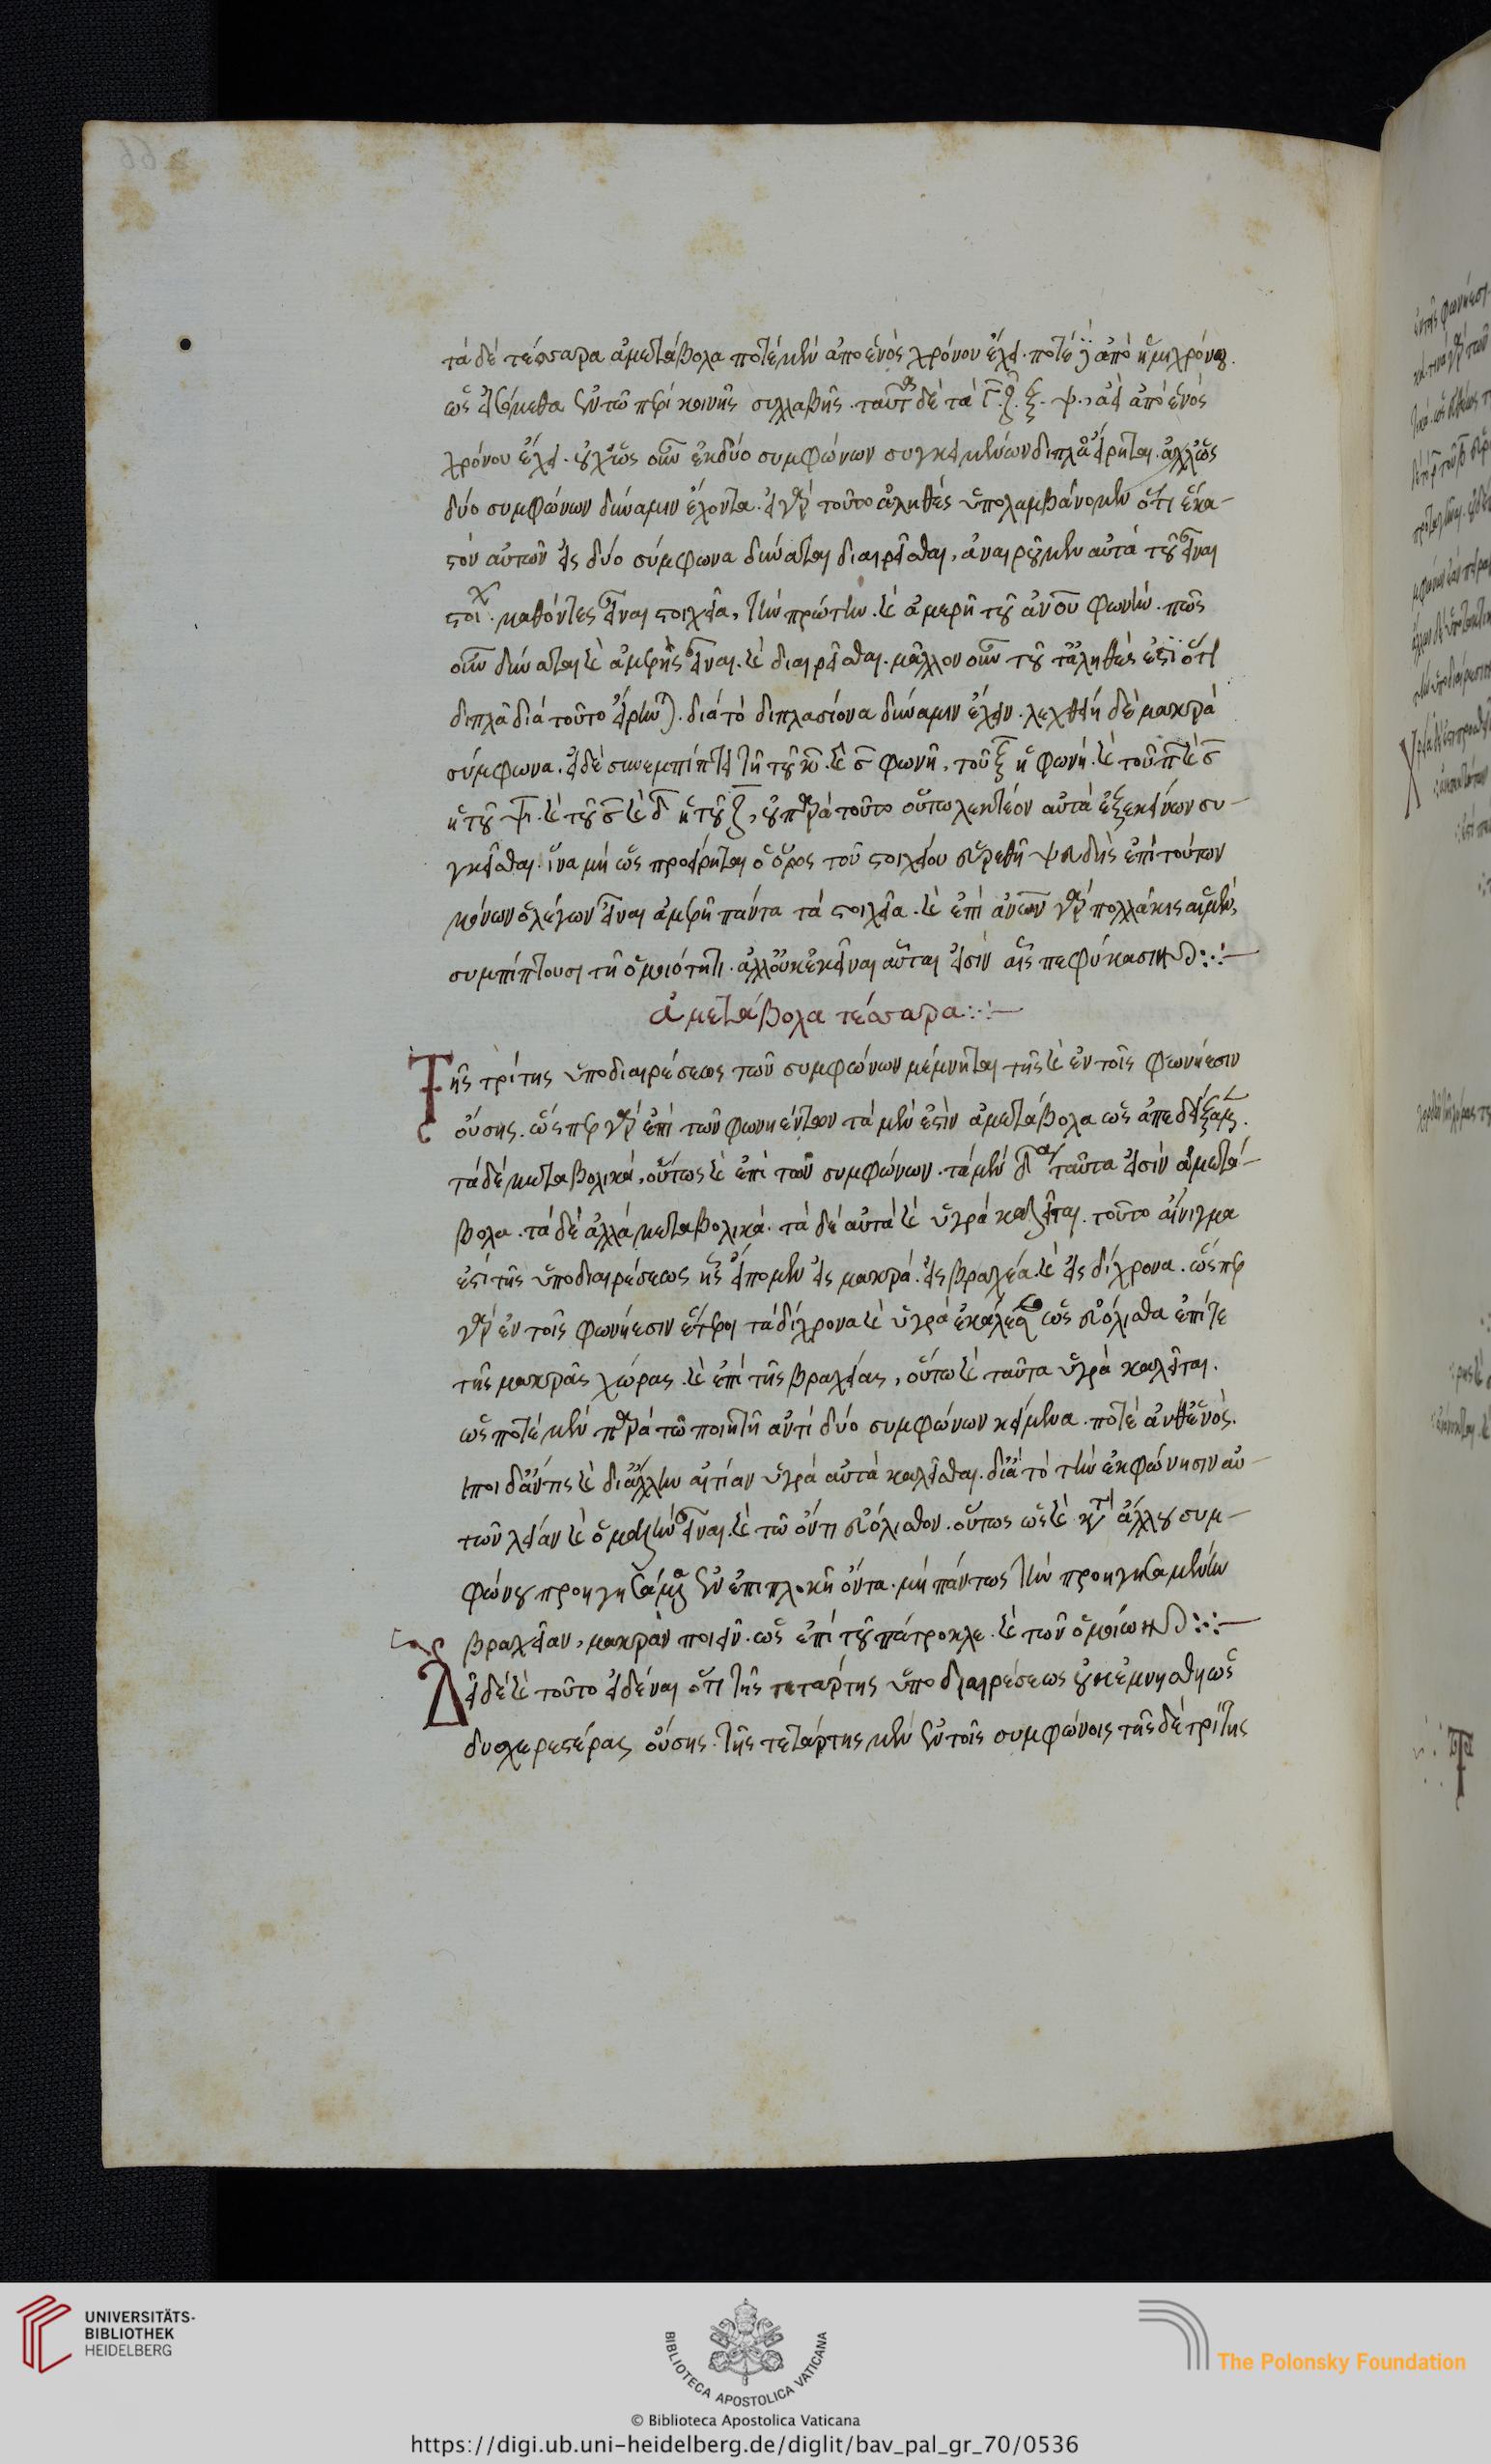 τὰ δὲ τέσσαρα ἀμετάβολα ποτὲ μὲν ἀπὸ ἑνὸς χρόνου ἔχει· ποτὲ δὲ ἀπὸ ἡμιχρόνου.
ὡς εἰσόμεθα ἐν τῷ περὶ κοινῆς συλλαβῆς· ταῦτα δὲ τὰ ζ. ξ. ψ. ἀεὶ ἀπὸ ἑνὸς
χρόνου ἔχει. οὐχ ὡς οὖν ἐκ δύο συμφώνων συγκειμένων διπλᾶ εἴρηται. ἀλλ' ὡς
δύο συμφώνων δύναμιν ἔχοντα. εἰ γὰρ τοῦτο ἀληθὲς ὑπολαμβάνομεν ὅτι ἕκα-
στον αὐτῶν εἰς δύο σύμφωνα δύναται διαιρεῖσθαι, ἀναιροῦμεν αὐτὰ τοῦ εἶναι
στοιχ. μαθόντες εἶναι στοιχεῖα, τὴν πρώτην καὶ ἀμερῆ τοῦ ἀνου φωνήν. πῶς
οὖν δύναται καὶ ἀμερῆς εἶναι. καὶ διαιρεῖσθαι. μᾶλλον οὖν τοῦ τἀληθές ἐστι ὅτι
διπλᾶ διὰ τοῦτο εἴρηνται. διὰ τὸ διπλασίονα δύναμιν ἔχειν. λεχθείη δὲ μακρὰ
σύμφωνα. εἰ δὲ συνεμπίπτει τῇ τοῦ κ καὶ σ φωνῇ, τοῦ ξ ἡ φωνή. καὶ τοῦ π καὶ σ
ἡ τοῦ ψ. καὶ τοῦ σ καὶ δ ἡ τοῦ ζ, οὐ παρὰ τοῦτο οὕτω λεκτέον αὐτὰ ἐξ ἐκείνων συ-
γκεῖσθαι. ἵνα μὴ ὡς προείρηται ὁ ὅρος τοῦ στοιχείου εὑρεθῇ ψευδὴς ἐπὶ τούτων
μόνων ὁ λέγων εἶναι ἀμερῆ πάντα τὰ στοιχεῖα. καὶ ἐπὶ ἀνων γὰρ πολλάκις
συμπίπτουσι τῇ ὁμοιότητι. ἀλλ' οὐκ ἐκεῖναι αὗται εἰσὶν αἷς πεφύκασιν:·—
ἀμετάβολα τέσσαρα:·—
Τῆς τρίτης ὑποδιαιρέσεως τῶν συμφώνων μέμνηται τῆς καὶ ἐν τοῖς φωνήεσιν
οὔσης. ὥσπερ γὰρ ἐπὶ τῶν φωνηέντων τὰ μὲν ἐστὶν ἀμετάβολα ὡς ἀπεδείξαμεν.
τὰ δὲ μεταβολικὰ, οὕτως καὶ ἐπὶ τῶν συμφώνων. τὰ μὲν δ ταῦτα εἰσὶν ἀμετά-
βολα. τὰ δὲ ἄλλα μεταβολικά. τὰ δὲ αὐτὰ καὶ ὑγρὰ καλεῖται. τοῦτο αἴνιγμα
ἐστὶ τῆς ὑποδιαιρέσεως ἧς εἴπομεν εἰς μακρά. εἰς βραχέα. καὶ εἰς δίχρονα. ὥσπερ
γὰρ ἐν τοῖς φωνήεσιν ἕτεροι τὰ δίχρονα καὶ ὑγρὰ ἐκάλεσαν ὡς εὐόλισθα ἐπί τε
τῆς μακρᾶς χώρας καὶ ἐπὶ τῆς βραχείας, οὕτω καὶ ταῦτα ὑγρὰ καλεῖται.
ὡς ποτὲ μὲν παρὰ τῷ ποιητῇ ἀντὶ δύο συμφώνων κείμενα. ποτὲ ἀνθ' ἑνὸς.
εἴποι δ' ἄν τις καὶ δι' ἄλλην αἰτίαν ὑγρὰ αὐτὰ καλεῖσθαι. διὰ τὸ τὴν ἐκφώνησιν αὐ-
τῶν λείαν καὶ ὁμαλὴν εἶναι. καὶ τῷ ὄντι εὐόλισθον. οὕτως ὡς καὶ ἄλλου συμ-
φώνου προηγησάμενα ἐν ἐπιπλοκῇ ὄντα. μὴ πάντως τὴν προηγησαμένην
βραχεῖαν, μακρὰν ποιεῖν. ὡς ἐπὶ τοῦ πάτροκλε. καὶ τῶν ὁμοίων:·—
Δεῖ δὲ καὶ τοῦτο εἰδέναι ὅτι τῆς τετάρτης ὑποδιαιρέσεως οὐκ ἐμνήσθη ὡς
δυσχερεστέρας οὔσης. τῆς τετάρτης μὲν ἐν τοῖς συμφώνοις τῆς δὲ τρίτης
UNIVERSITÄTS-
BIBLIOTHEK
HEIDELBERG
BIBLIOTECA APOSTOLICA VATICANA
The Polonsky Foundation
© Biblioteca Apostolica Vaticana
https://digi.ub.uni-heidelberg.de/diglit/bav_pal_gr_70/0536